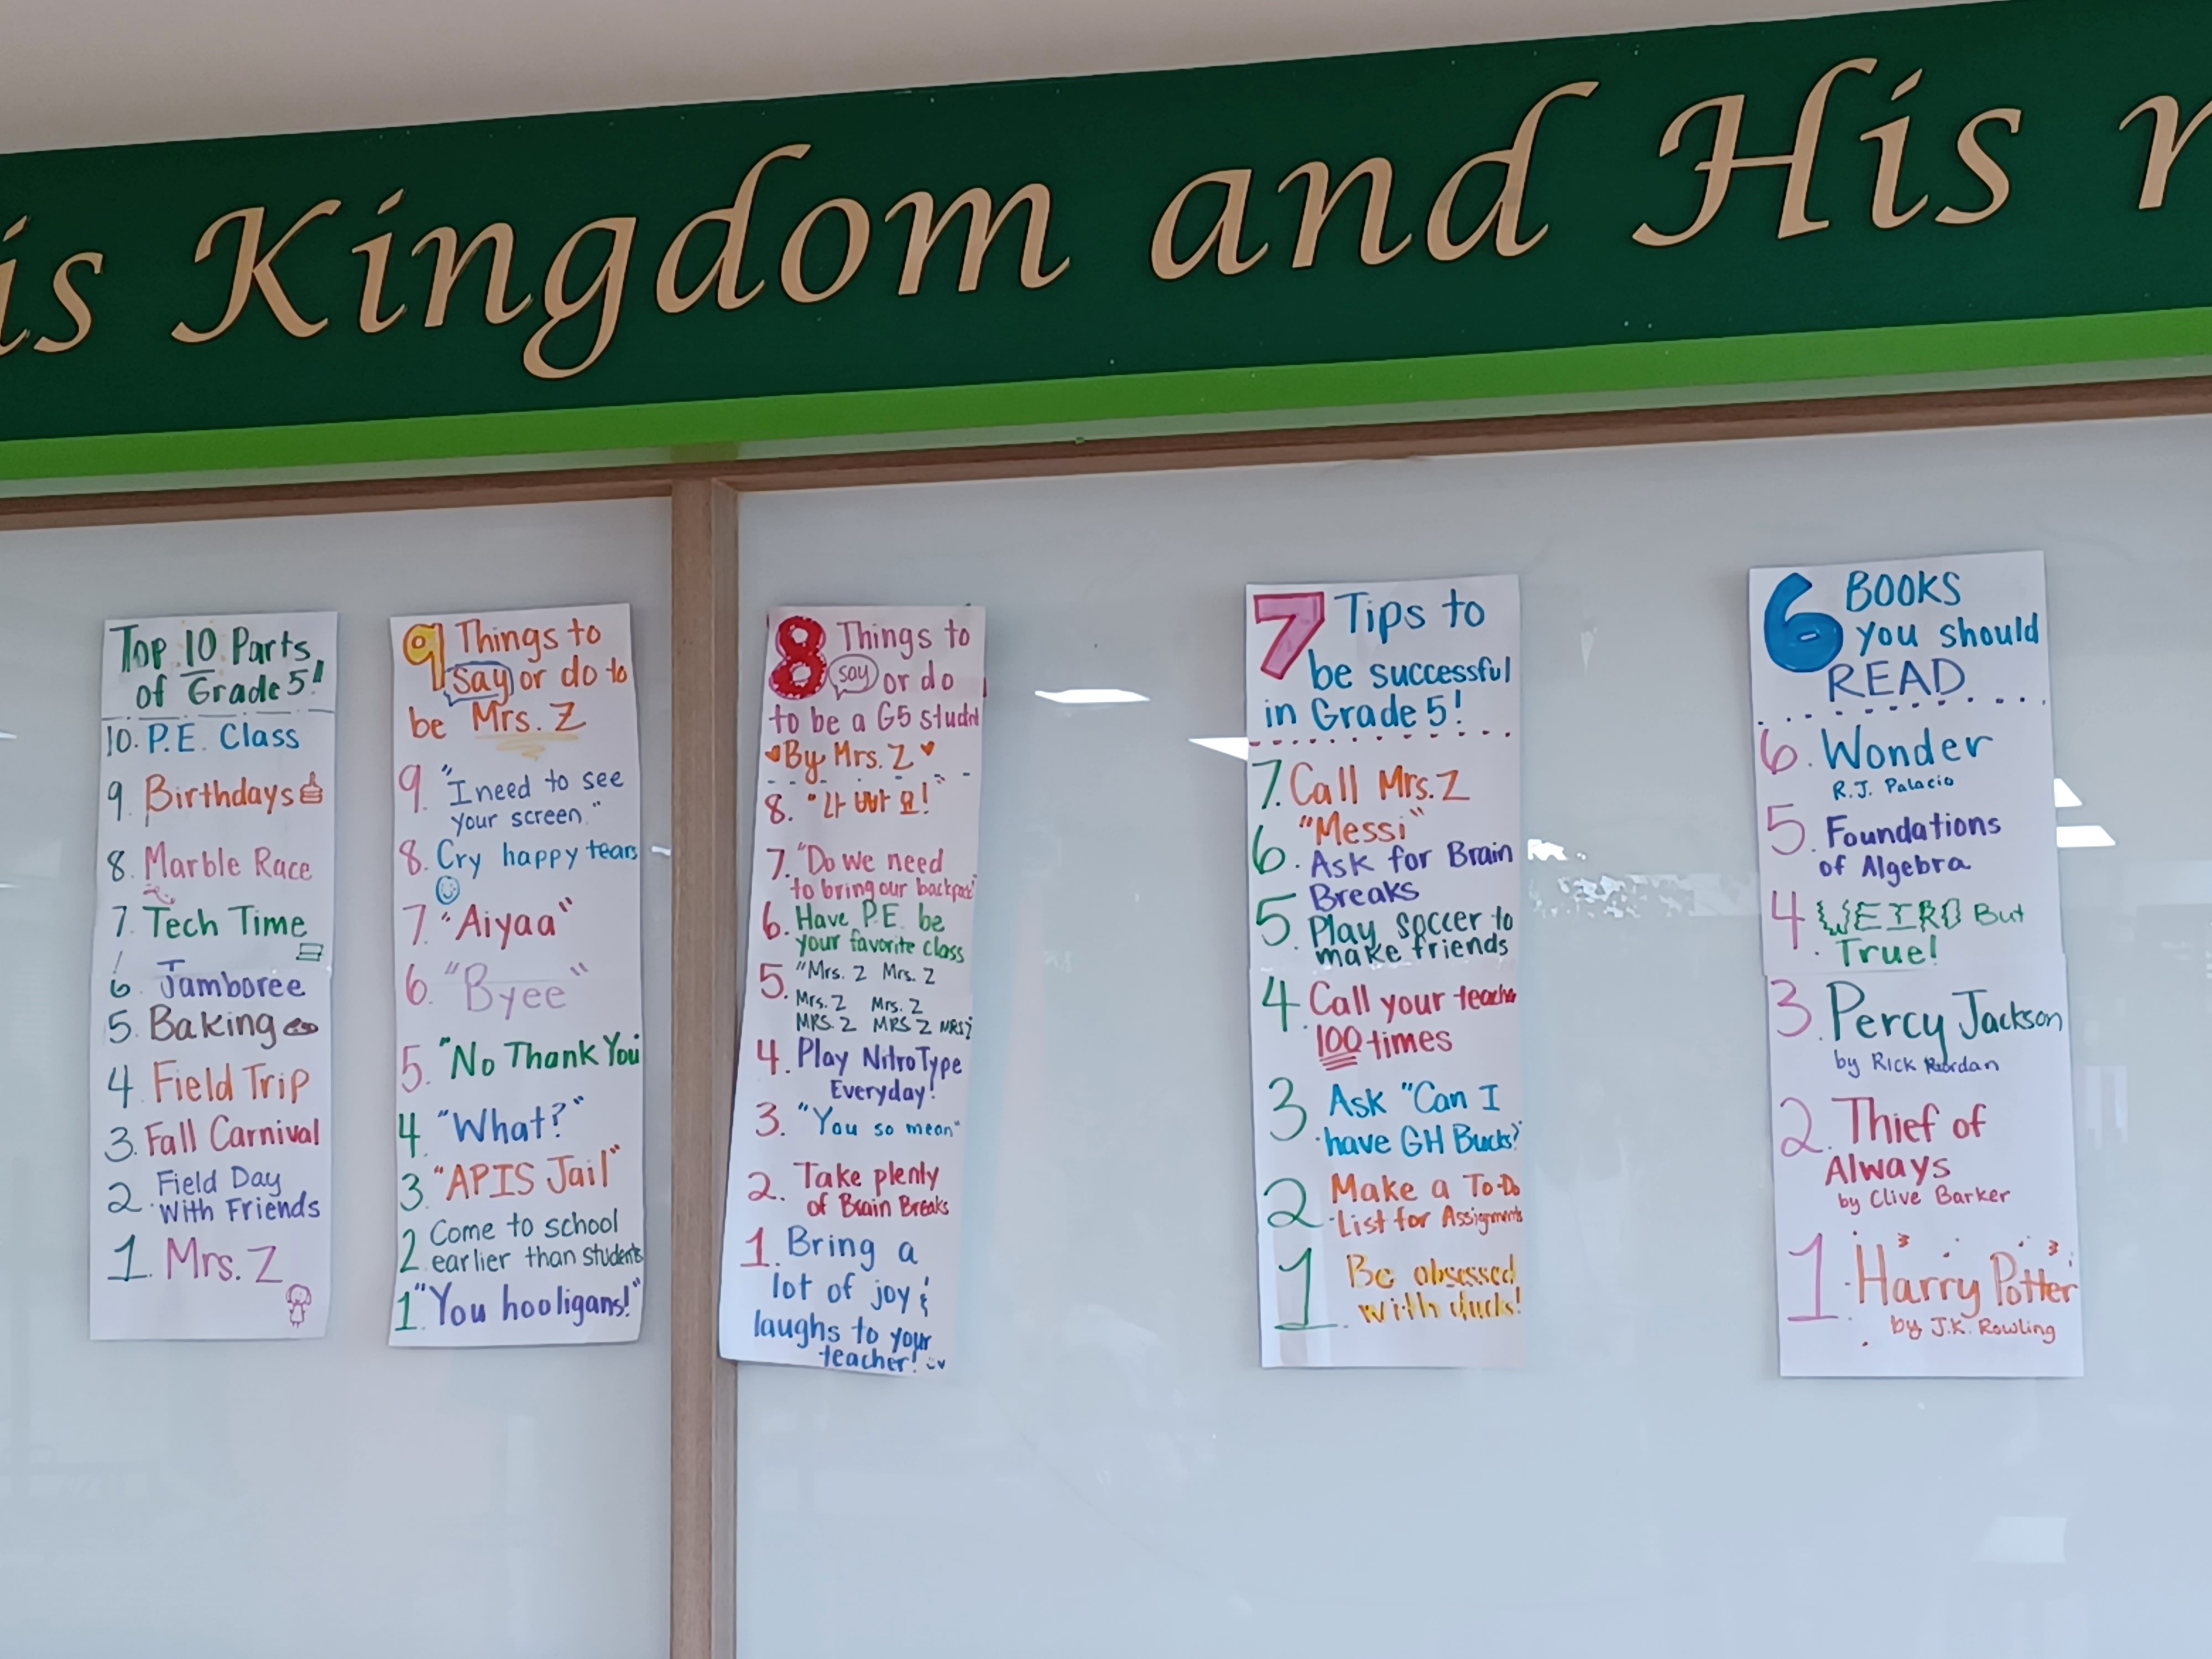 is Kingdom and His r
Top 10 Parts
of Grade 5!
10. P.E. Class
9. Birthdays
8. Marble Race
7. Tech Time
6. Jamboree
5. Baking
4. Field Trip
3. Fall Carnival
2. Field Day
With Friends
1. Mrs. Z
9 Things to
say or do to
be Mrs. Z
9. "I need to see
your screen."
8. Cry happy tears
7. "Aiyaa"
6. "Byee"
5. "No Thank You
4. "What?"
3. "APIS Jail"
2 Come to school
earlier than students
1. "You hooligans!"
8 Things to
say or do
to be a G5 studnt
By Mrs. Z
8. "나 빠 요!"
7. "Do we need
to bring our backpack"
6. Have P.E. be
your favorite class
5. "Mrs. Z Mrs. Z
Mrs. Z Mrs. Z
MRS. Z MRS Z MRS Z
4. Play NitroType
Everyday!
3. "You so mean"
2. Take plenty
of Brain Breaks
1. Bring a
lot of joy &
laughs to your
teacher!
7 Tips to
be successful
in Grade 5!
7. Call Mrs. Z
"Messi"
6. Ask for Brain
Breaks
5. Play soccer to
make friends
4. Call your teacher
100 times
3. Ask "Can I
have GH Bucks?"
2. Make a To-Do
List for Assignments
1. Be obsessed
with ducks!
6 BOOKS
you should
READ
6. Wonder
R.J. Palacio
5. Foundations
of Algebra
4. WEIRD But
True!
3. Percy Jackson
by Rick Riordan
2. Thief of
Always
by Clive Barker
1. Harry Potter
by J.K. Rowling